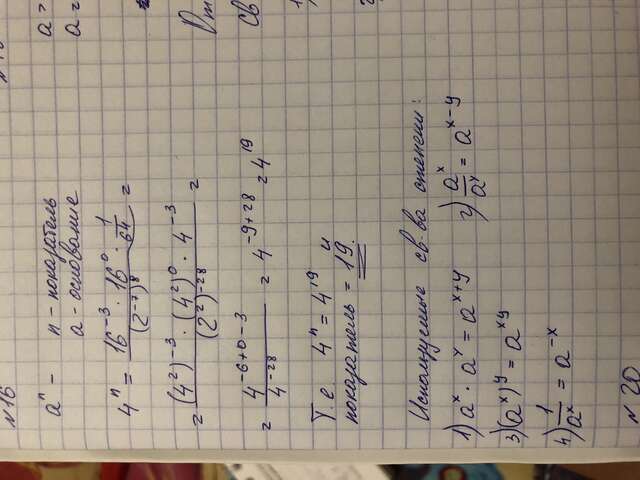 №16
aⁿ - n - показатель
a - основание
4ⁿ = (16⁻³ · 16⁰ · 1/64) / (2⁻⁷)⁸ =
= ((4²)⁻³ · (4²)⁰ · 4⁻³) / (2²)⁻²⁸ =
= 4⁻⁶⁺⁰⁻³ / 4⁻²⁸ = 4⁻⁹⁺²⁸ = 4¹⁹
Т.е 4ⁿ = 4¹⁹ и
показатель = 19.
Используемые св-ва степени:
1) aˣ · aʸ = aˣ⁺ʸ 2) aˣ / aʸ = aˣ⁻ʸ
3) (aˣ)ʸ = aˣʸ
4) 1 / aˣ = a⁻ˣ
№ 20